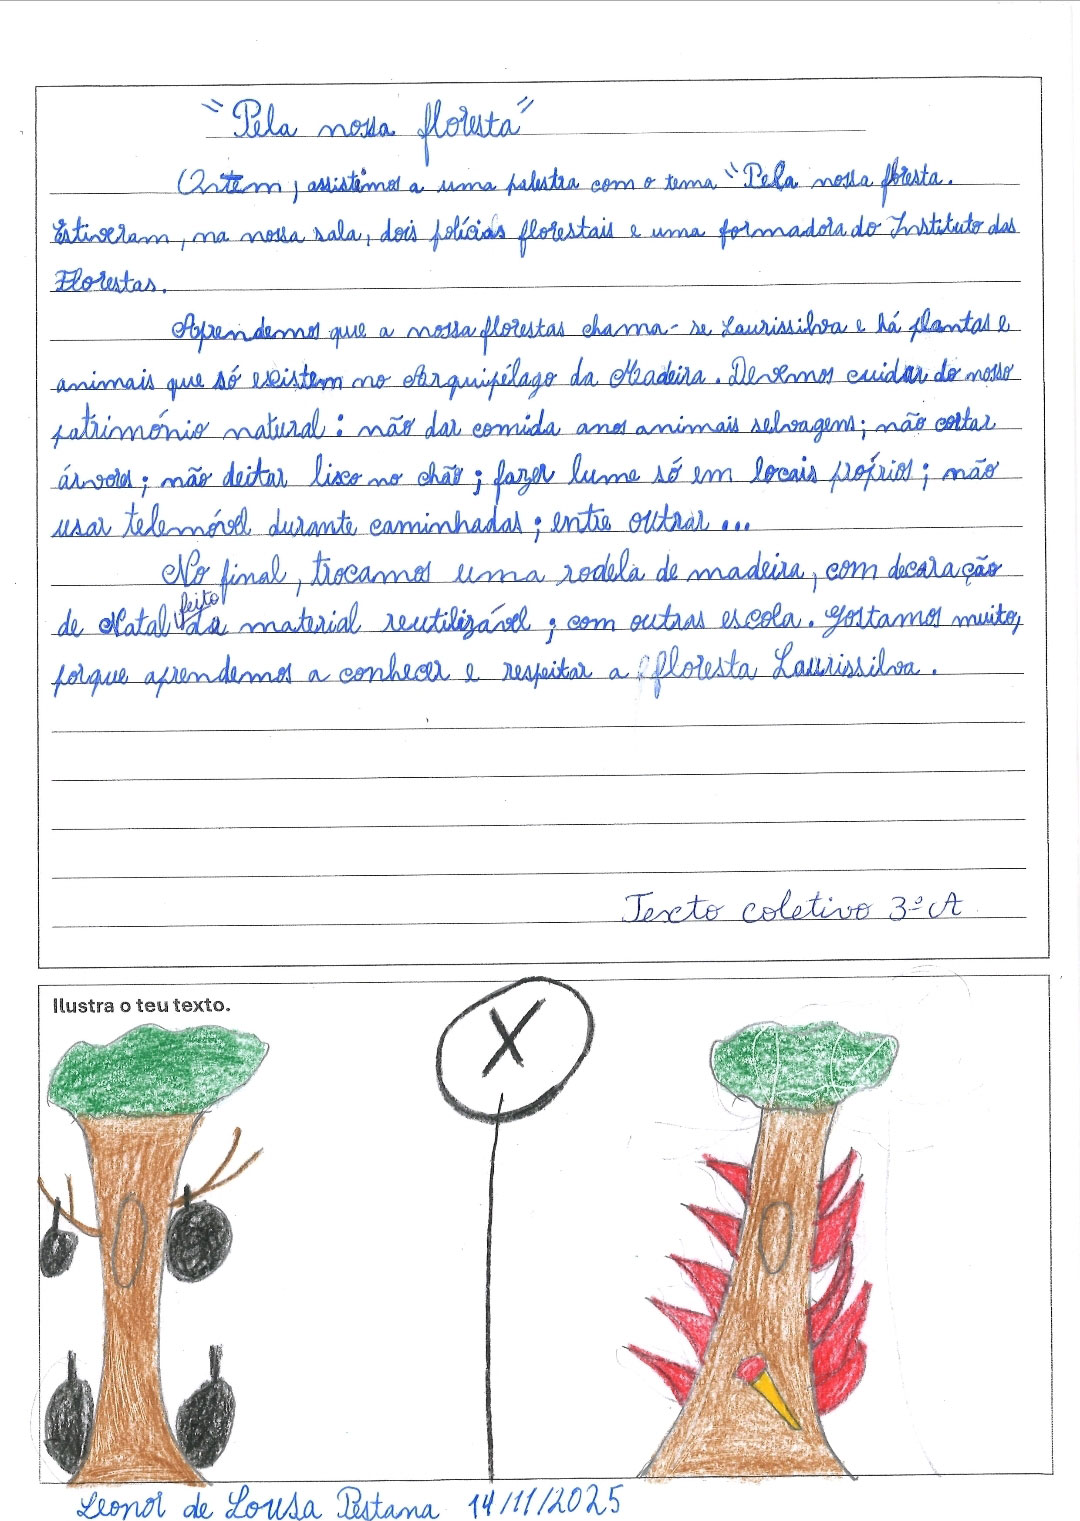 "Pela nossa floresta"
Ontem, assistimos a uma palestra com o tema "Pela nossa floresta.
Estiveram, na nossa sala, dois polícias florestais e uma formadora do Instituto das
Florestas.
Aprendemos que a nossa florestas chama-se Laurissilva e há plantas e
animais que só existem no Arquipélago da Madeira. Devemos cuidar do nosso
património natural: não dar comida aos animais selvagens; não cortar
árvores; não deitar lixo no chão; fazer lume só em locais próprios; não
usar telemóvel durante caminhadas; entre outrar...
No final, trocamos uma rodela de madeira, com decaração
feito
de Natal da material reutilizável, com outras escola. Gostamos muito,
porque aprendemos a conhecer e respeitar a floresta Laurissilva.
Texto coletivo 3º A
Ilustra o teu texto.
X
Leonor de Sousa Pestana 14/11/2025